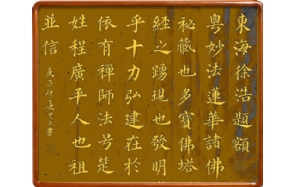 東海徐浩題額
粵妙法蓮華諸佛
秘藏也多寶佛塔
經之踴現也發明
乎十力弘建在於
依有禪師法号楚
姓程廣平人也祖
並信